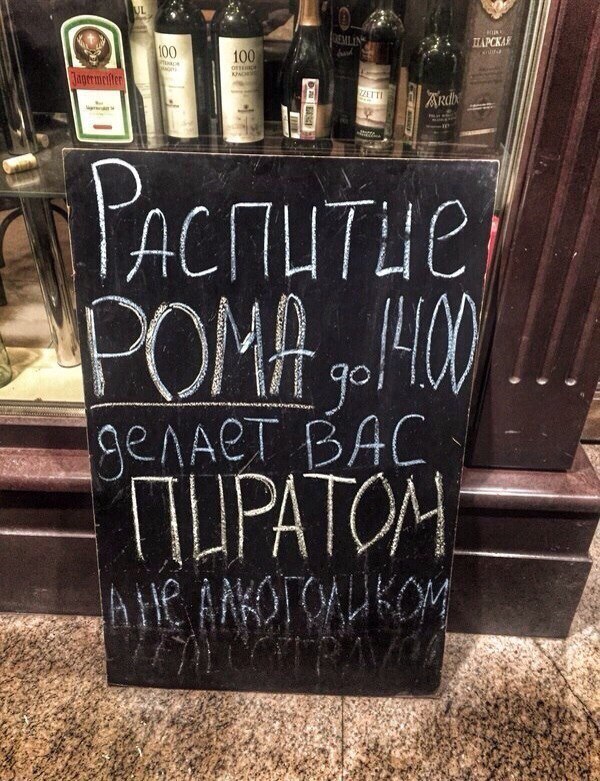 Jägermeister
100
ОТТЕНКОВ
100
ОТТЕНКОВ
КРАСНОГО
ЦАРСКАЯ
Распитие
РОМА до 14.00
делает ВАС
ПИРАТОМ
А не АЛКОГОЛИКОМ